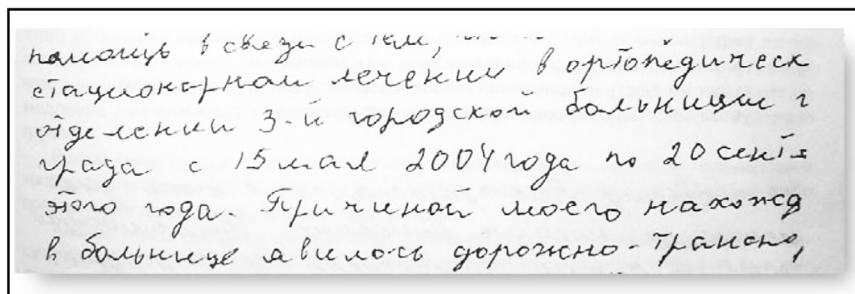 помощь в связи с тем,
стационарном лечении в ортопедическ
отделении 3-й городской больницы г
града с 15 мая 2004 года по 20 сентя
этого года. Причиной моего нахожд
в больнице явилось дорожно-трансп